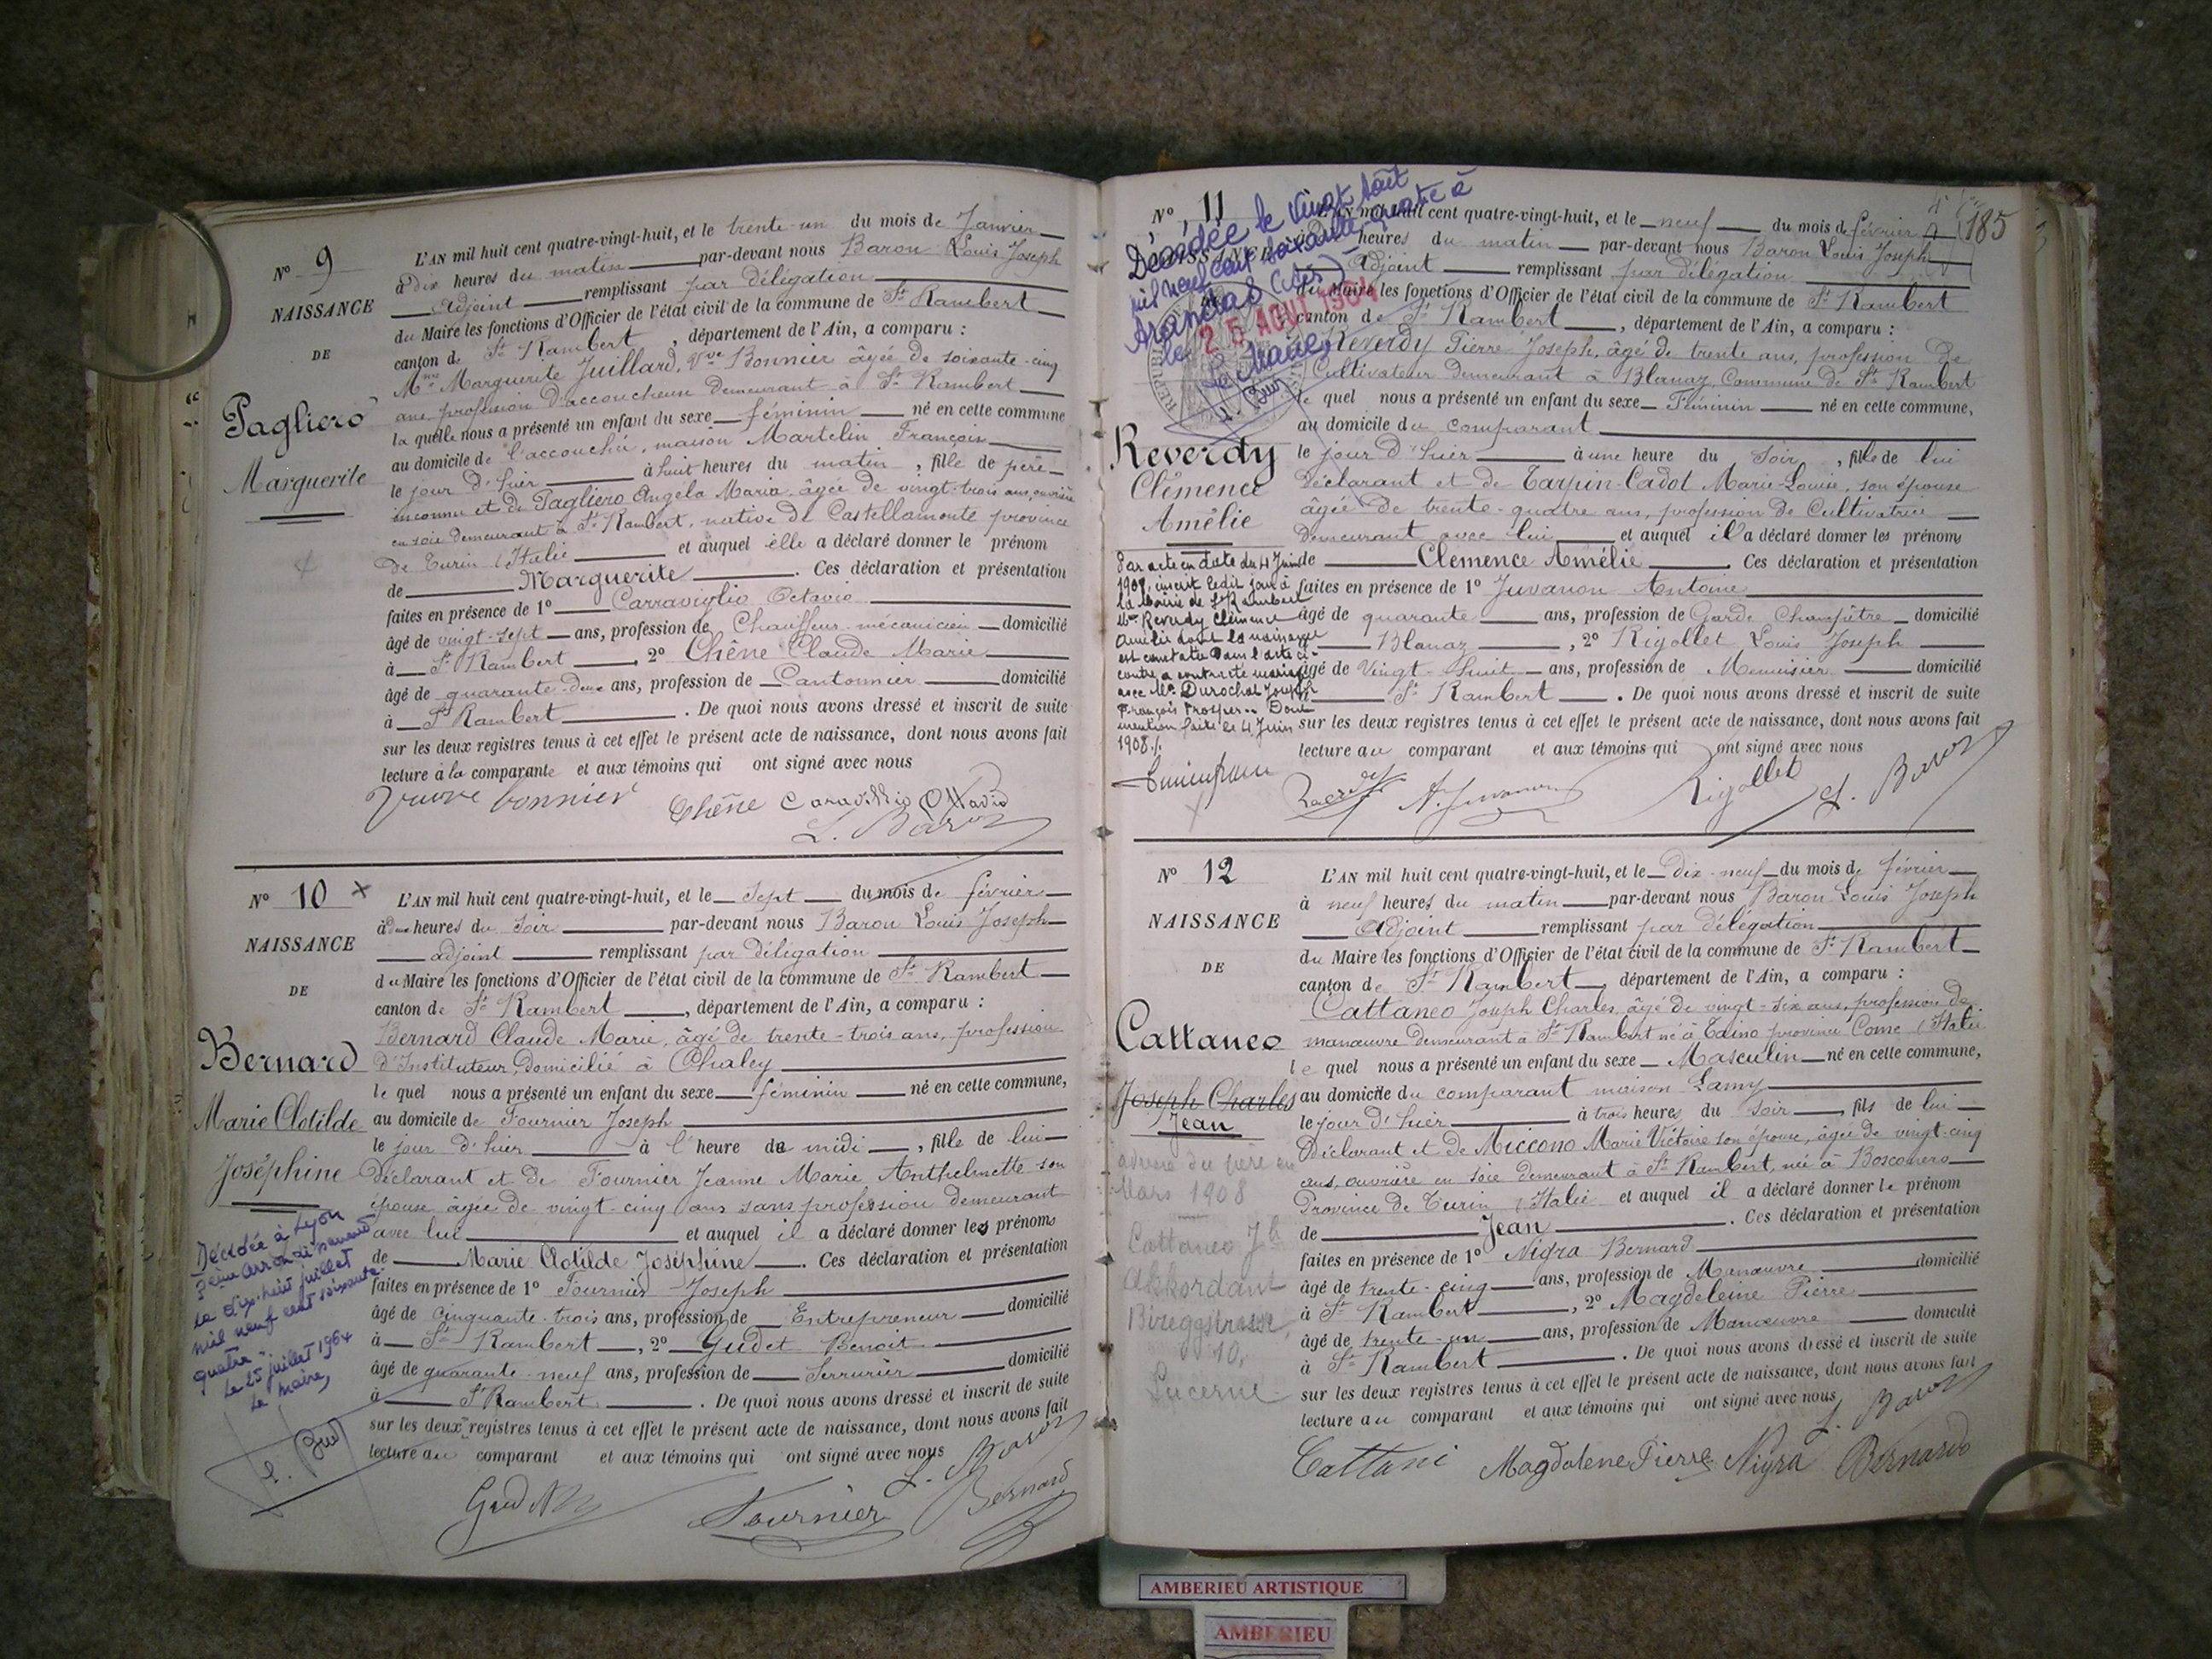 N° 9
NAISSANCE
DE
Pagliero
Marguerite
L'AN mil huit cent quatre-vingt-huit, et le trente-un du mois de Janvier
à dix heures du matin par-devant nous Baron Louis Joseph
Adjoint remplissant par délégation
du Maire les fonctions d'Officier de l'état civil de la commune de St Rambert
canton de St Rambert, département de l'Ain, a comparu :
Mme Marguerite Juillard, Vve Bonnier âgée de soixante-cinq
ans, profession d'accoucheuse demeurant à St Rambert
laquelle nous a présenté un enfant du sexe féminin né en cette commune
au domicile de l'accouchée, maison Martelin François
le jour d'hier à huit heures du matin, fille de père
inconnu et de Pagliero Angéla Maria, âgée de vingt-trois ans, ouvrière
en soie demeurant à St Rambert, native de Castellamonte province
de Turin (Italie et auquel elle a déclaré donner le prénom
de Marguerite. Ces déclaration et présentation
faites en présence de 1° Carraviglio Octavio
âgé de vingt-sept ans, profession de Chauffeur-mécanicien domicilié
à St Rambert, 2° Chêne Claude Marie
âgé de quarante-deux ans, profession de Cantonnier domicilié
à St Rambert. De quoi nous avons dressé et inscrit de suite
sur les deux registres tenus à cet effet le présent acte de naissance, dont nous avons fait
lecture à la comparante et aux témoins qui ont signé avec nous
veuve bonnier Chêne Ottavio
L. Baron
N° 10 x
NAISSANCE
DE
Bernard
Marie Clotilde
Joséphine
Décédée à Lyon
3ème arrondissement
le dix-huit juillet
mil neuf cent soixante
quatre.
Le 25 juillet 1964
Le maire,
L'AN mil huit cent quatre-vingt-huit, et le Sept du mois de février
à deux heures du soir par-devant nous Baron Louis Joseph
adjoint remplissant par délégation
du Maire les fonctions d'Officier de l'état civil de la commune de St Rambert
canton de St Rambert, département de l'Ain, a comparu :
Bernard Claude Marie, âgé de trente-trois ans, profession
d'Instituteur, domicilié à Chaley
lequel nous a présenté un enfant du sexe féminin né en cette commune,
au domicile de Fournier Joseph
le jour d'hier à l'heure de midi, fille de lui
déclarant et de Fournier Jeanne Marie Anthelmette son
épouse âgée de vingt-cinq ans sans profession demeurant
avec lui et auquel il a déclaré donner les prénoms
de Marie Clotilde Joséphine. Ces déclaration et présentation
faites en présence de 1° Fournier Joseph
âgé de cinquante-trois ans, profession de Entrepreneur domicilié
à St Rambert, 2° Gudet Benoit
âgé de quarante-neuf ans, profession de Serrurier domicilié
à St Rambert. De quoi nous avons dressé et inscrit de suite
sur les deux registres tenus à cet effet le présent acte de naissance, dont nous avons fait
lecture au comparant et aux témoins qui ont signé avec nous
L. Baron
Fournier Bernard
185
N° 11
Décédée le vingt Août
mil neuf cent soixante-quatre à
Arandas (Ain)
le 25 AOUT 1964
Le Maire,
Reverdy
Clémence
Amélie
Par acte en date du 4 Juin
1908, inscrit ledit jour à
la Mairie de St Rambert
Mlle Reverdy Clémence
Amélie dont la naissance
est constatée dans l'acte ci-
contre a contracté mariage
avec Mr Durochat Joseph
François Prosper.. Dont
mention faite le 4 Juin
1908./.
L'AN mil huit cent quatre-vingt-huit, et le neuf du mois de février
heures du matin par-devant nous Baron Louis Joseph
Adjoint remplissant par délégation
du Maire les fonctions d'Officier de l'état civil de la commune de St Rambert
canton de St Rambert, département de l'Ain, a comparu :
Reverdy Pierre Joseph, âgé de trente ans, profession de
Cultivateur demeurant à Blanaz, Commune de St Rambert
lequel nous a présenté un enfant du sexe Féminin né en cette commune,
au domicile du comparant
le jour d'hier à une heure du soir, fille de lui
déclarant et de Tarpin-Cadot Marie-Louise, son épouse
âgée de trente-quatre ans, profession de Cultivatrice
demeurant avec lui et auquel il a déclaré donner les prénoms
de Clémence Amélie. Ces déclaration et présentation
faites en présence de 1° Juvanon Antoine
âgé de quarante ans, profession de Garde Champêtre domicilié
Blanaz, 2° Rigollet Louis Joseph
âgé de Vingt-huit ans, profession de Menuisier domicilié
St Rambert. De quoi nous avons dressé et inscrit de suite
sur les deux registres tenus à cet effet le présent acte de naissance, dont nous avons fait
lecture au comparant et aux témoins qui ont signé avec nous
Rigollet L. Baron
N° 12
NAISSANCE
DE
Cattaneo
Joseph Charles
Jean
adresse du père en
Mars 1908
Cattaneo Jh
Akkordant
Bireggstrasse,
10,
Lucerne
L'AN mil huit cent quatre-vingt-huit, et le dix-neuf du mois de février
à neuf heures du matin par-devant nous Baron Louis Joseph
Adjoint remplissant par délégation
du Maire les fonctions d'Officier de l'état civil de la commune de St Rambert
canton de St Rambert, département de l'Ain, a comparu :
Cattaneo Joseph Charles, âgé de vingt-six ans, profession de
manœuvre demeurant à St Rambert né à Taino province Come (Italie
lequel nous a présenté un enfant du sexe Masculin né en cette commune,
au domicile du comparant maison Lamy
le jour d'hier à trois heures du soir, fils de lui
déclarant et de Miccono Marie Victoire son épouse, âgée de vingt-cinq
ans, ouvrière en soie demeurant à St Rambert, née à Bosconero
Province de Turin (Italie et auquel il a déclaré donner le prénom
de Jean. Ces déclaration et présentation
faites en présence de 1° Nigra Bernard
âgé de trente-cinq ans, profession de Manœuvre domicilié
à St Rambert, 2° Magdeleine Pierre
âgé de trente-un ans, profession de Manœuvre domicilié
à St Rambert. De quoi nous avons dressé et inscrit de suite
sur les deux registres tenus à cet effet le présent acte de naissance, dont nous avons fait
lecture au comparant et aux témoins qui ont signé avec nous
L. Baron
Cattani Magdalene Pierre Nigra Bernardo
AMBERIEU ARTISTIQUE
AMBERIEU